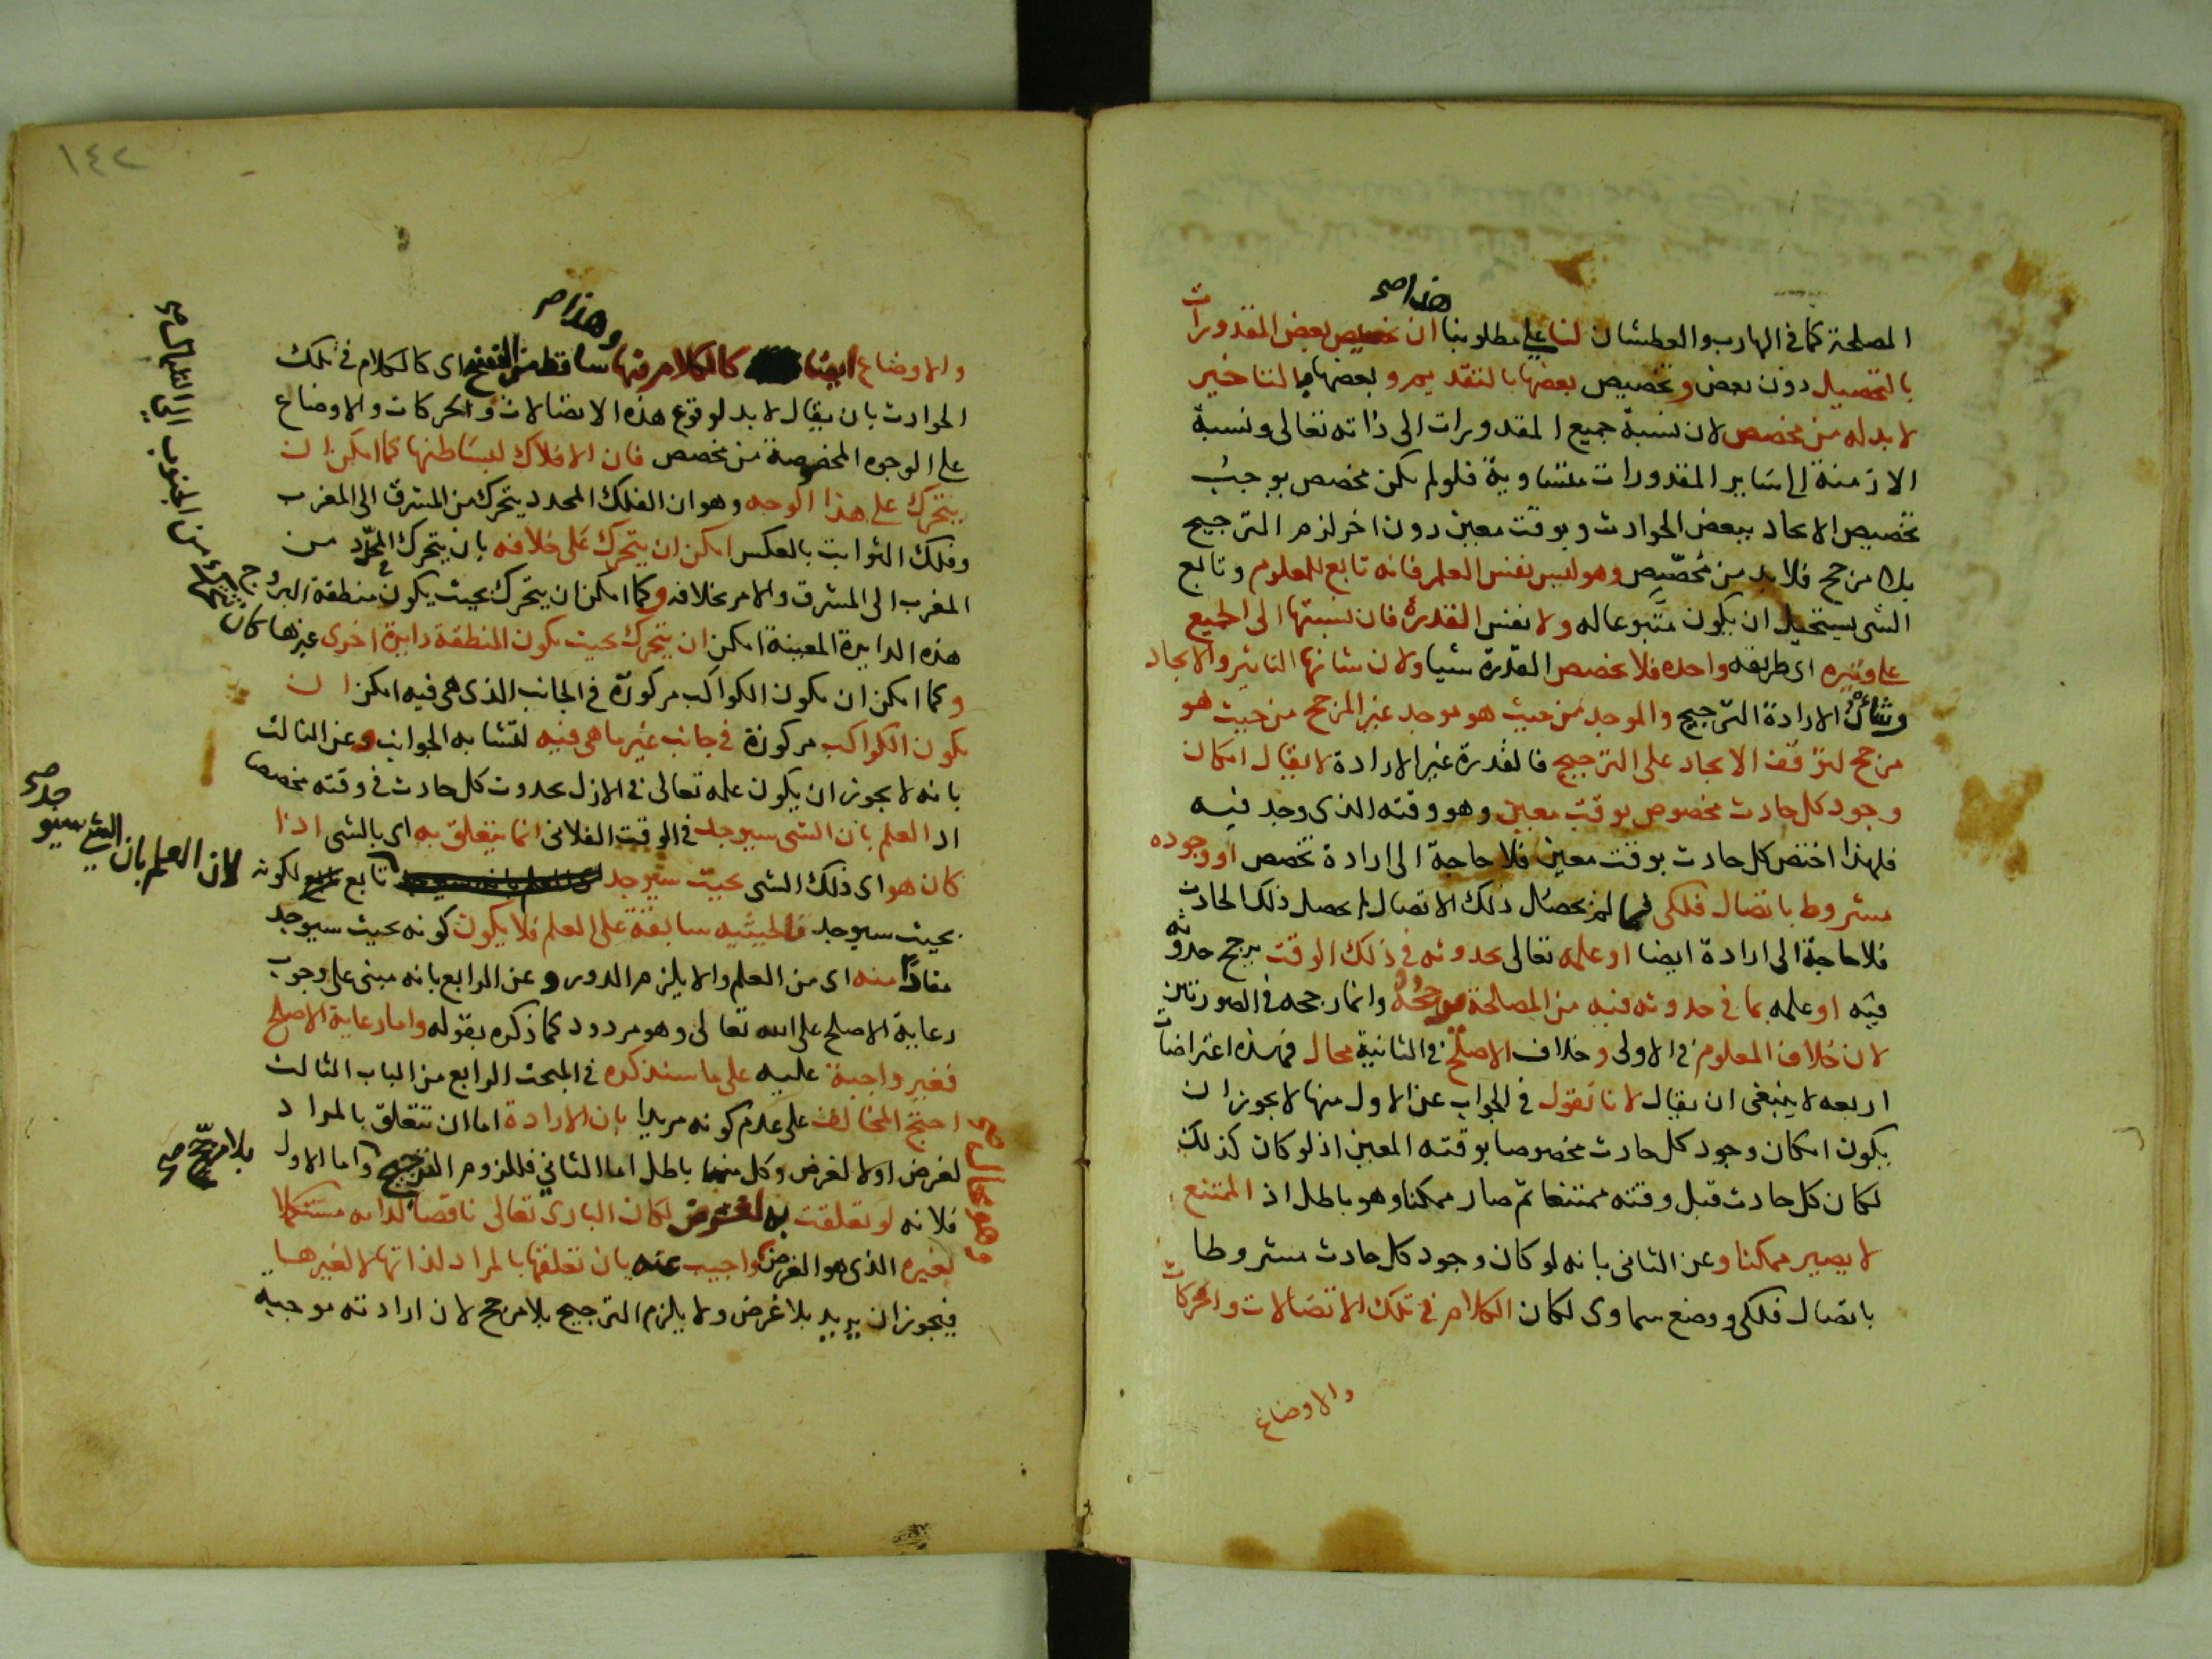 هذا صح
المصلحة كما في الهارب والعطشان لنا على مطلوبنا ان تخصيص بعض المقدورات
بالتحصيل دون بعض وتخصيص بعضها بالتقديم وبعضها بالتاخير
لا بد له من مخصص لان نسبة جميع المقدورات الى ذاته تعالى ونسبة
الازمنة الى ساير المقدورات متساوية فلو لم يكن مخصص يوجب
تخصيص الايجاد ببعض الحوادث وبوقت معين دون اخر لزم الترجيح
بلا مرجح فلا بد من مخصص وهو ليس نفس العلم فانه تابع للمعلوم وتابع
الشي يستحيل ان يكون متبوعا له ولا نفس القدرة فان نسبتها الى الجميع
على وتيره اى طريقه واحده فلا تخصص القدرة شيا ولان شانها التاثير والايجاد
وشأن الارادة الترجيح والموجد من حيث هو موجد غير المرجح من حيث هو
مرجح لتوقف الايجاد على الترجيح فالقدرة غير الارادة لا يقال امكان
وجود كل حادث مخصوص بوقت معين وهو وقته الذى وجد فيه
فلهذا اختص كل حادث بوقت معين فلا حاجة الى ارادة تخصص او وجوده
مشروط باتصال فلكى فما لم يحصل ذلك الاتصال لم يحصل ذلك الحادث
فلا حاجة الى ارادة ايضا او علمه تعالى بحدوثه في ذلك الوقت يرجح حدوثه
فيه او علمه بما في حدوثه فيه من المصلحة مرجحه وانما رجحه في الصورتين
لان خلاف المعلوم في الاولى وخلاف الاصلح في الثانية محال فهذه اعتراضات
اربعه لا ينبغى ان يقال لانا نقول في الجواب عن الاول منها لا يجوز ان
يكون امكان وجود كل حادث مخصوصا بوقته المعين اذ لو كان كذلك
لكان كل حادث قبل وقته ممتنعا ثم صار ممكنا وهو باطل اذ الممتنع
لا يصير ممكنا وعن الثانى بانه لو كان وجود كل حادث مشروطا
باتصال فلكى ووضع سماوى لكان الكلام في تلك الاتصالات والحركات
والاوضاع
١٤٢
وهذا صح
والاوضاع ايضا كالكلام فيها ساقط من النسخ اى كالكلام في تلك
الحوادث بان يقال لا بد لوقوع هذه الاتصالات والحركات والاوضاع
على الوجوه المخصوصة من مخصص فان الافلاك لبساطتها كما امكن ان
يتحرك على هذا الوجه وهو ان الفلك المحدد يتحرك من المشرق الى المغرب
وفلك الثوابت بالعكس امكن ان يتحرك على خلافه بان يتحرك المحدد من
المغرب الى المشرق والامر بخلافه وكما امكن ان يتحرك بحيث يكون منطقة البروج
هذه الدايرة المعينة امكن ان يتحرك بحيث يكون المنطقة دايرة اخرى غيرها كان
من الجنوب الى الشمال صح
وكما امكن ان يكون الكواكب مركوزة في الجانب الذى هى فيه امكن ان
يكون الكواكب مركوزة في جانب غير ما هى فيه لتشابه الجوانب وعن الثالث
بانه لا يجوز ان يكون علمه تعالى في الازل بحدوث كل حادث في وقته مخصصا
اذ العلم بان الشى سيوجد في الوقت الفلانى انما يتعلق به اى بالشى اذا
كان هو اى ذلك الشى بحيث سيوجد تابع لكونه
لان العلم بان الشى سيوجد صح
بحيث سيوجد فالحيثيه سابقة على العلم فلا يكون كونه بحيث سيوجد
مفادا منه اى من العلم والا يلزم الدور وعن الرابع بانه مبنى على وجوب
رعاية الاصلح على الله تعالى وهو مردود كما ذكره بقوله واما رعاية الاصلح
فغير واجبة عليه على ما سنذكره في المبحث الرابع من الباب الثالث
احتج المخالف على عدم كونه مريدا بان الارادة اما ان تتعلق بالمراد
لغرض اولا لغرض وكل منهما باطل اما الثاني فللزوم الترجيح واما الاول
بلا مرجح صح
فلانه لو تعلقت به لغرض لكان البارى تعالى ناقصا لذاته مستكملا
لغيره الذى هو الغرض واجيب عنه بان تعلقها بالمراد لذاتها لا لغيرها
فيجوز ان يريد بلا غرض ولا يلزم الترجيح بلا مرجح لان ارادته موجبة